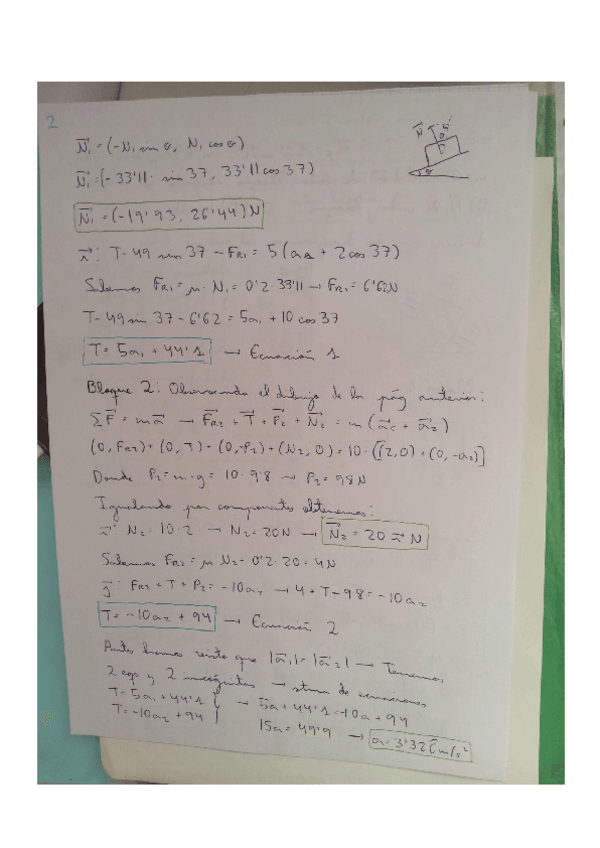 2
N⃗₁ = (-N₁ sin θ, N₁ cos θ)
N⃗₁ = (-33'11· sin 37, 33'11 cos 37)
N⃗₁ = (-19'93, 26'44) N
T - 49 sin 37 - FR₁ = 5 (a₁ + 2 cos 37)
Sabemos FR₁ = μ · N₁ = 0'2 · 33'11 → FR₁ = 6'62N
T - 49 sin 37 - 6'62 = 5a₁ + 10 cos 37
T = 5a₁ + 44'1 → Ecuación 1
Bloque 2: Observando el dibujo de la pág anterior:
ΣF⃗ = ma⃗ → F⃗R₂ + T⃗ + P⃗₂ + N⃗₂ = m (a⃗c + a⃗₂)
(0, FR₂) + (0, T) + (0, -P₂) + (N₂, 0) = 10 · [(2,0) + (0, -a₂)]
Donde P₂ = m · g = 10 · 9'8 → P₂ = 98N
Igualando por componentes obtenemos:
i⃗: N₂ = 10 · 2 → N₂ = 20N → N⃗₂ = 20 i⃗ N
Sabemos FR₂ = μ N₂ = 0'2 · 20 = 4N
j⃗: FR₂ + T + P₂ = -10a₂ → 4 + T - 98 = -10a₂
T = -10a₂ + 94 → Ecuación 2
Antes hemos visto que |a⃗₁| = |a⃗₂| → Tenemos
2 eqs y 2 incógnitas → stma de ecuaciones
T = 5a₁ + 44'1 } → 5a + 44'1 = -10a + 94
T = -10a₂ + 94
15a = 49'9 → a = 3'326 m/s²
N⃗
θ